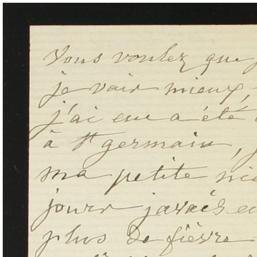 Vous voulez que
je vais mieux
j'ai eu a été
à St germain,
ma petite
jour javais eu
plus de fièvre